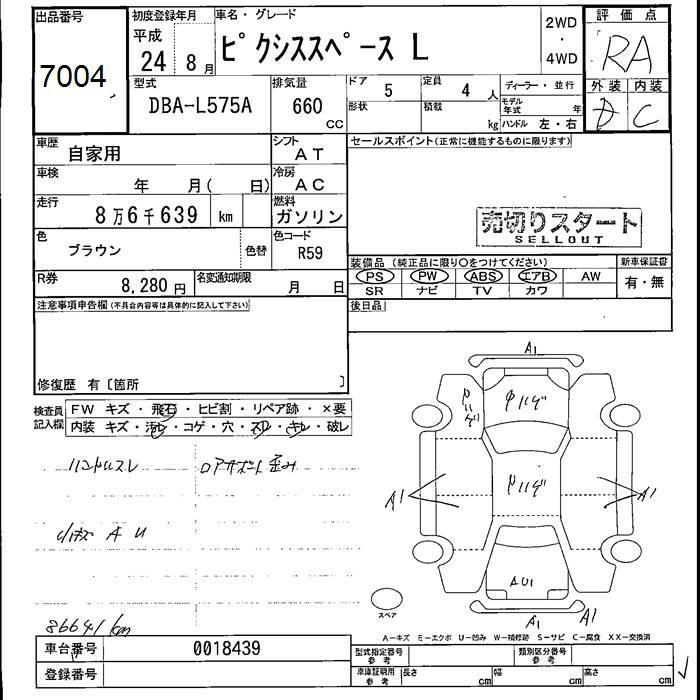 出品番号
7004
初度登録年月
平成
24 8 月
車名・グレード
ピクシススペース L
2WD
・
4WD
評価点
RA
外装 内装
D C
型式
DBA-L575A
排気量
660
CC
ドア
5
定員
4 人
形状
積載
kg
ディーラー・並行
モデル年式 年
ハンドル 左・右
車歴
自家用
シフト
AT
セールスポイント(正常に機能するものに限ります)
車検
年 月( 日)
冷房
AC
走行
8万6千639 km
燃料
ガソリン
売切りスタート
SELLOUT
色
ブラウン
色替
色コード
R59
装備品(純正品に限り○をつけてください)
新車保証書
PS PW ABS エアB AW
SR ナビ TV カワ
有・無
R券
8,280 円
名変通知期限
月 日
後日品
注意事項申告欄(不具合内容等は具体的に記入して下さい)
修復歴 有〔箇所 〕
検査員記入欄
FW キズ・飛石・ヒビ割・リペア跡・×要
内装 キズ・汚レ・コゲ・穴・スレ・キレ・破レ
ハンドルスレ ロアサポート歪み
A U
86641km
A1
A1
A1
AU1
A1
A1
スペア
A-キズ E-エクボ U-凹み W-補修跡 S-サビ C-腐食 XX-交換済
車台番号
0018439
登録番号
型式指定番号
参考
類別区分番号
参考
車庫証明用
参考
長さ cm
幅 cm
高さ cm